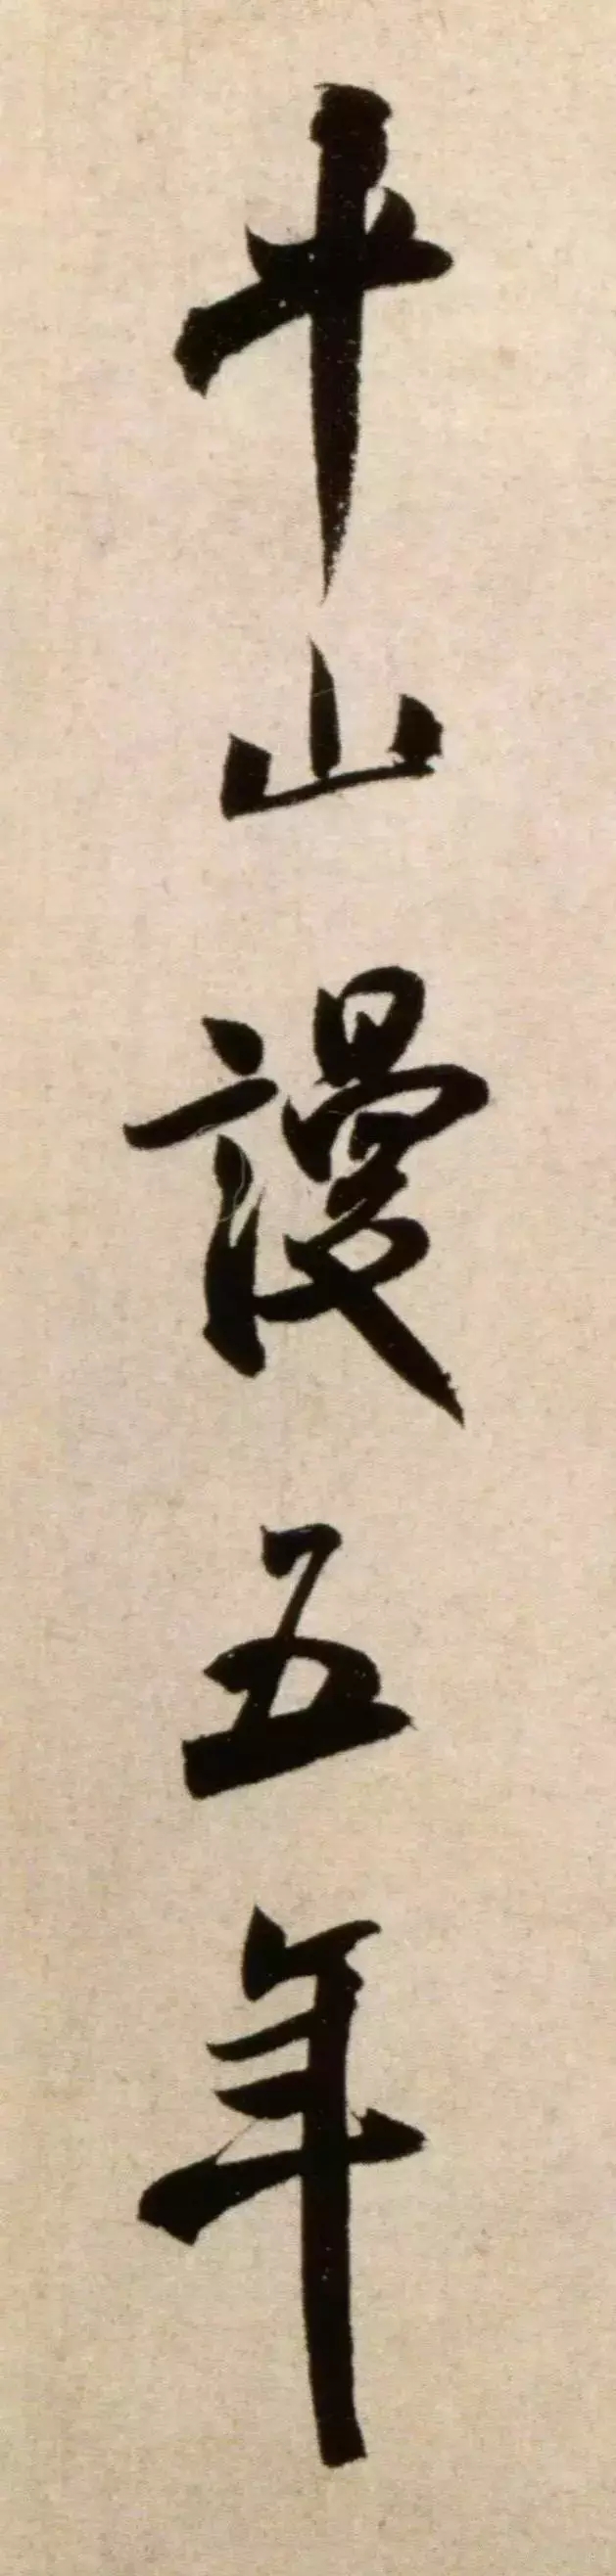 十山謾五年